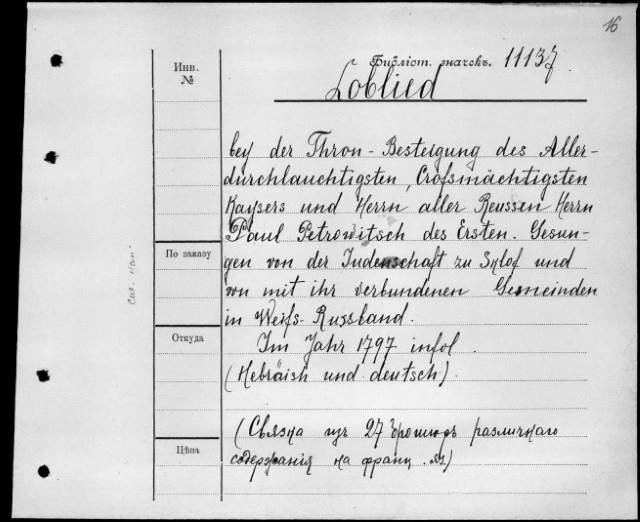 16
Инв.
№
Библіот. значекъ. 11137
Loblied
bey der Thron-Besteigung des Aller-
durchlauchtigsten, Grofsmächtigsten
Kaysers und Herrn aller Reussen Herrn
Paul Petrowitsch des Ersten. Gesun-
gen von der Judenschaft zu Sklof und
von mit ihr verbundenen Gemeinden
in Weifs-Russland.
Im Jahr 1797 infol.
(Hebräish und deutsch).
(Связка изъ 27 брошюръ различнаго
содержанія на франц. яз.)
По заказу
Откуда
Цѣна